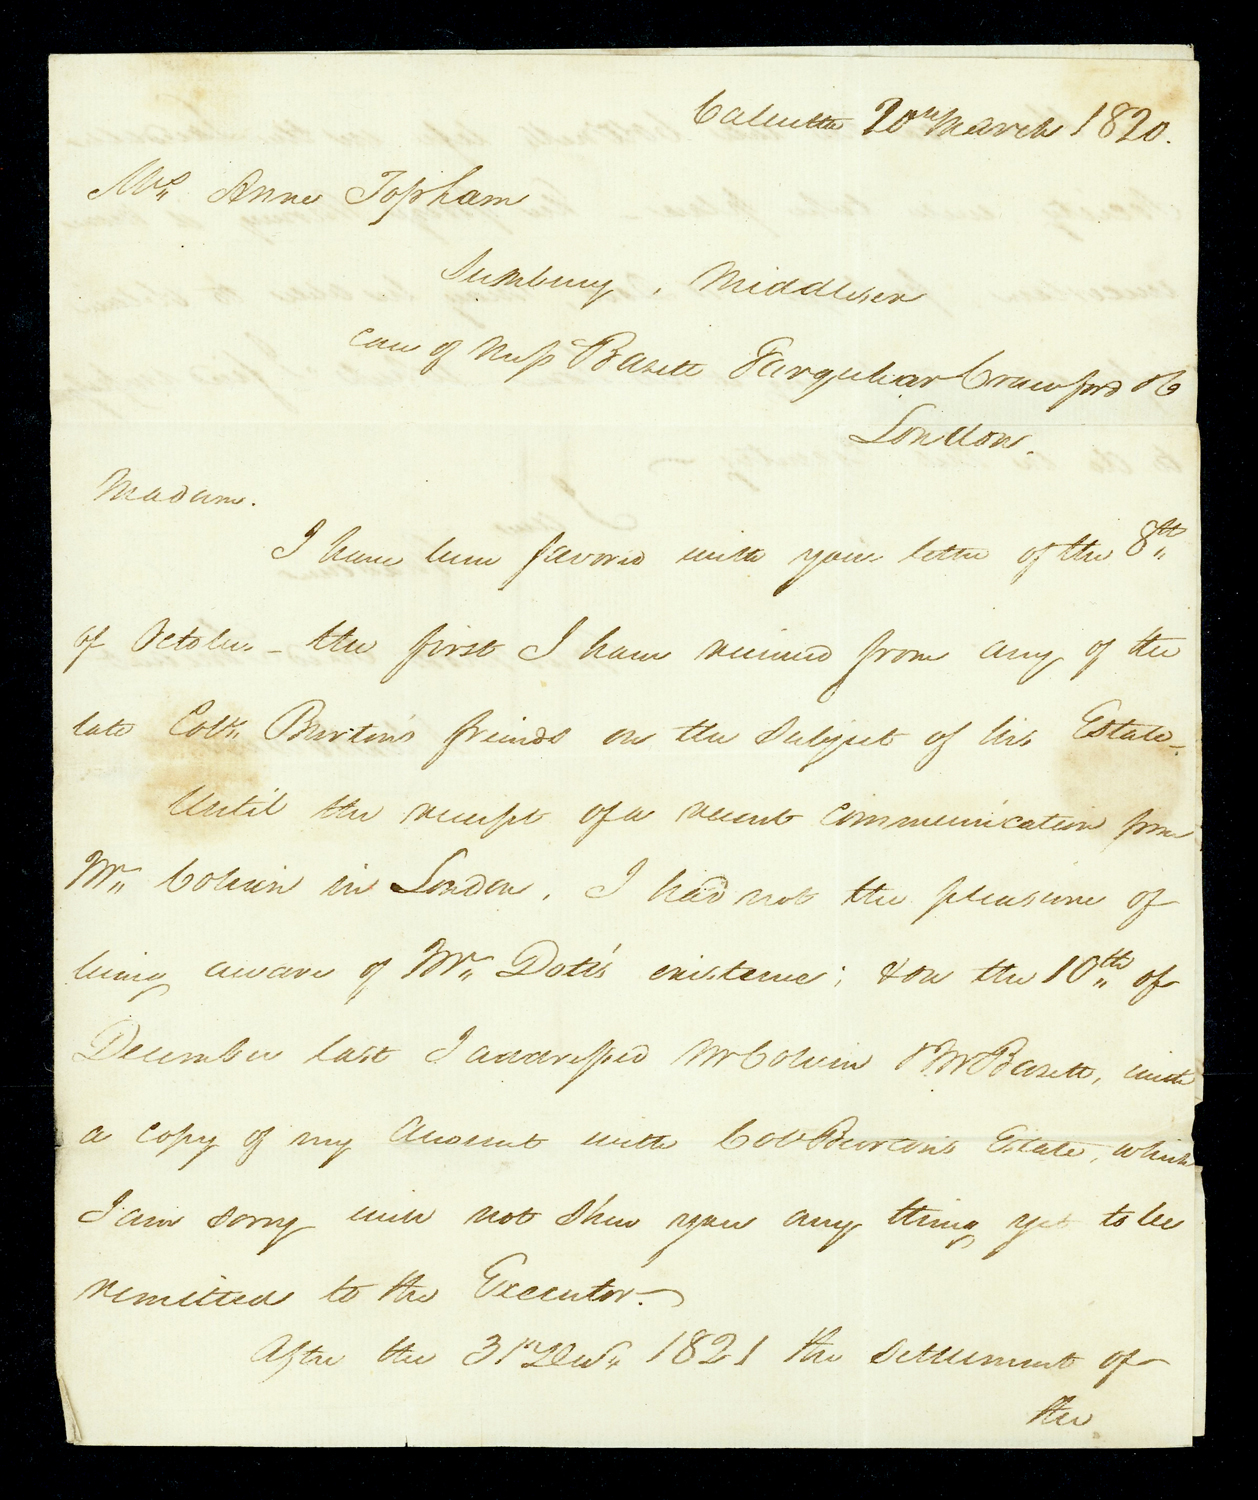 Calcutta 20th March 1820.
Mrs Anne Topham
Sunbury, Middlesex
care of Messrs Bazett Farquhar Crawford & Co
London.
Madam.
I have been favored with your letter of the 8th
of October - the first I have received from any of the
late Coll Burton's friends on the Subject of his Estate -
Until the receipt of a recent communication from
Mr Colvin in London, I had not the pleasure of
being aware of Mr existence; & on the 10th of
December last I addressed Mr Colvin & Mr Bazett, with
a copy of my Account with Col Burton's Estate, which
I am sorry will not Shew you any thing yet to be
remitted to the Executor. -
After the 31st Decr 1821 the Settlement of
the